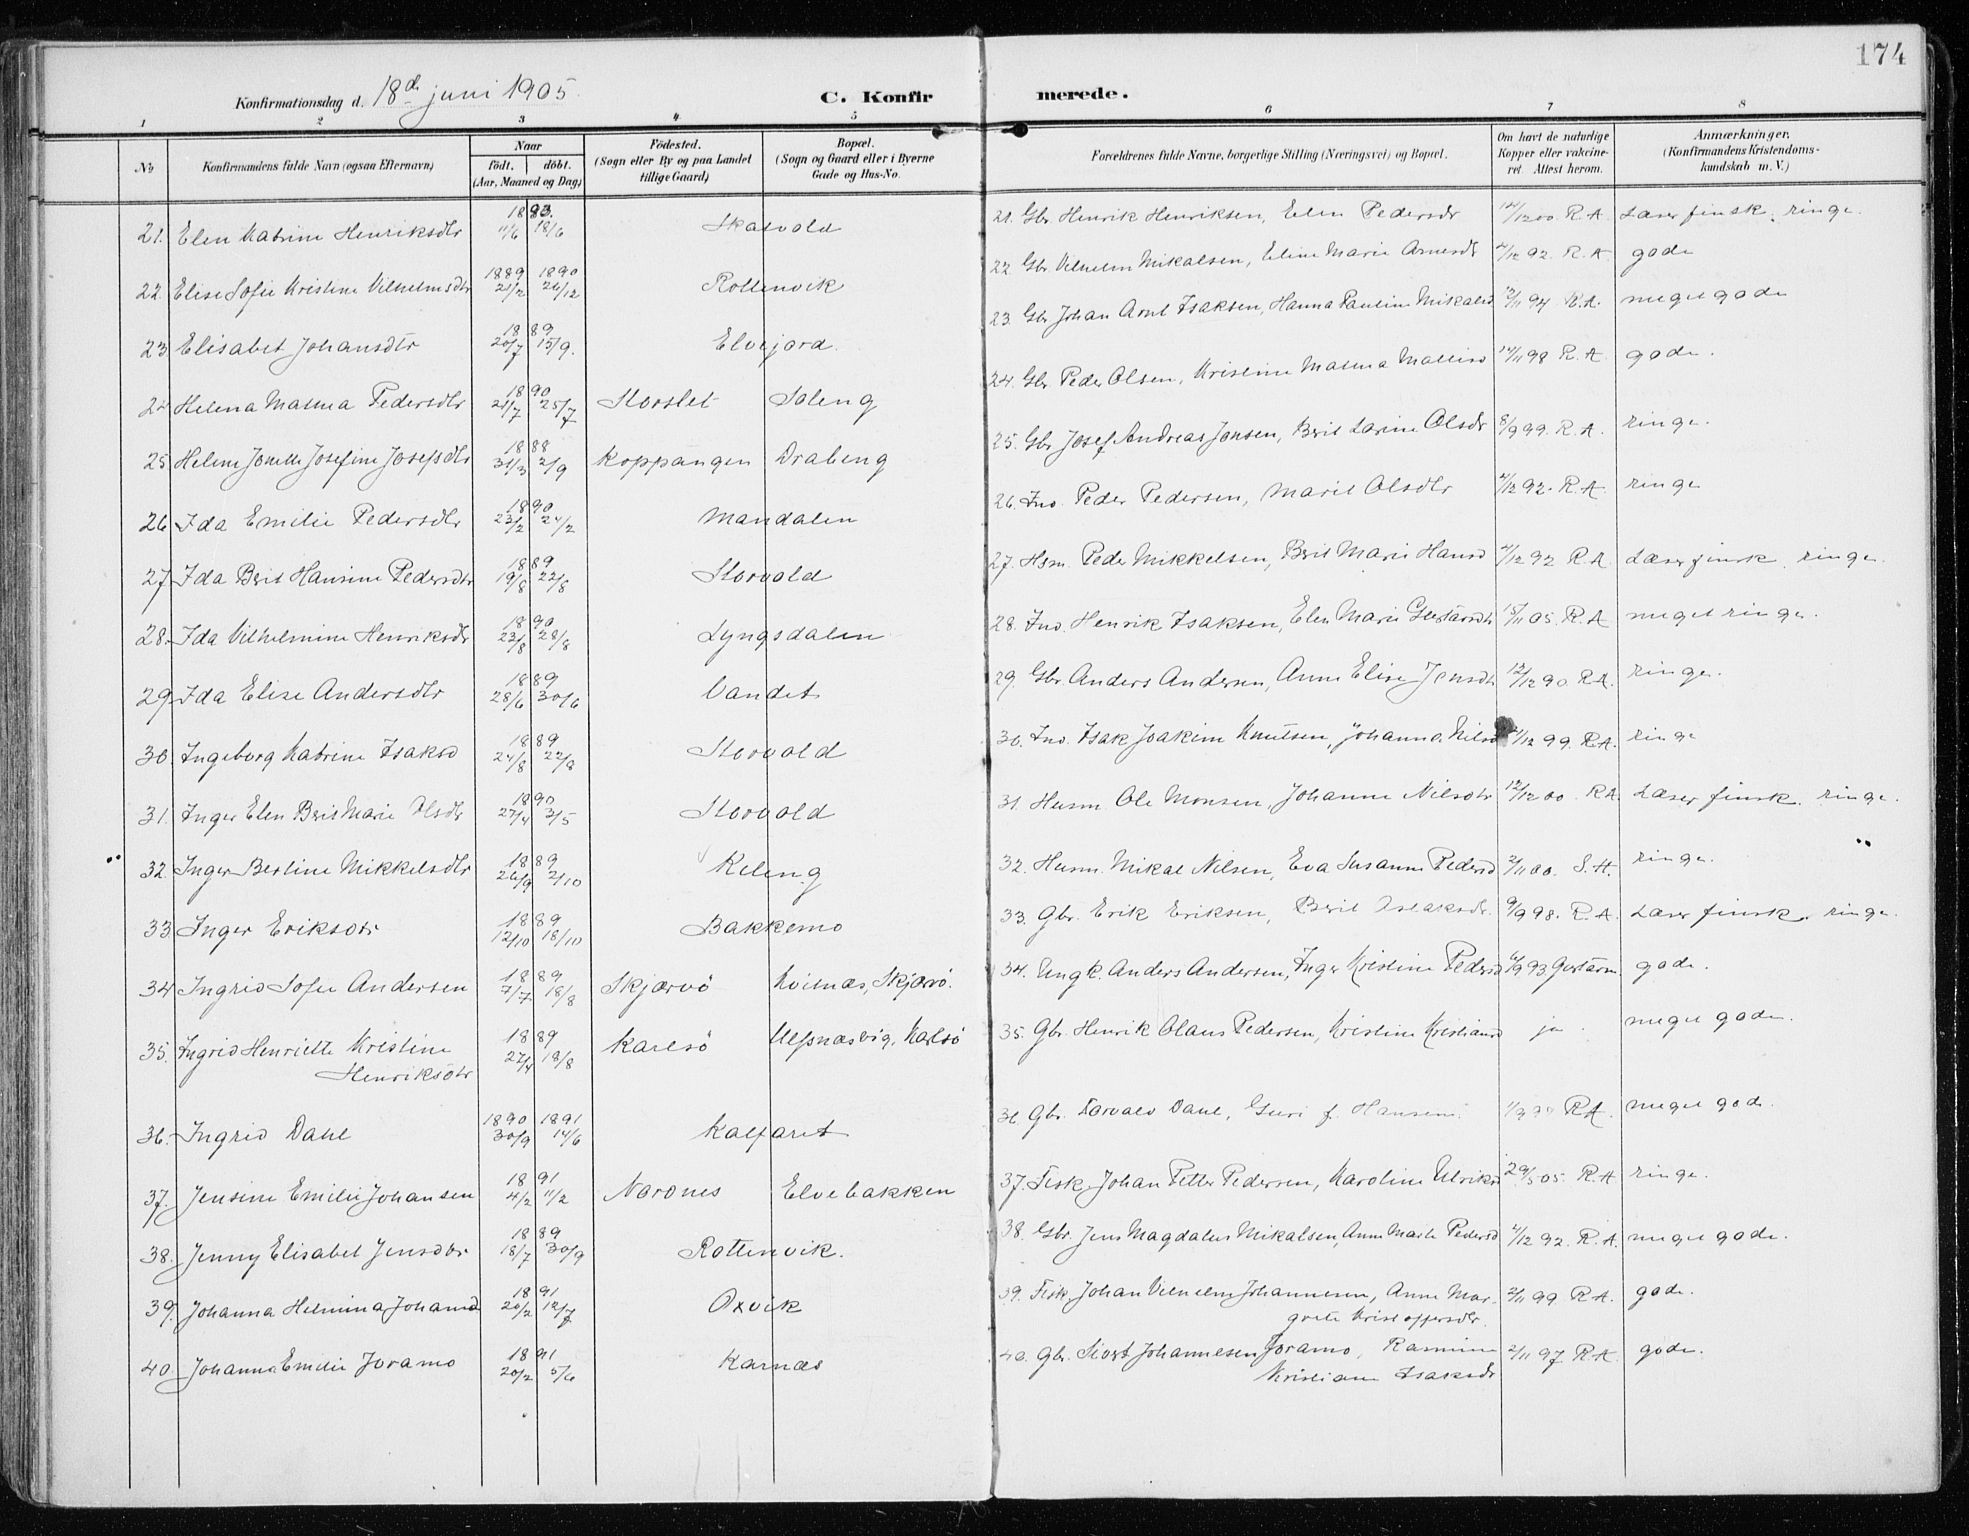 174
Konfirmationsdag d. 18de juni 1905.
C. Konfirmerede.
1 2 3 4 5 6 7 8
No
Konfirmandens fulde Navn (ogsaa Efternavn)
Naar
født. døbt.
(Aar, Maaned og Dag)
Fødested.
(Sogn eller By og paa Landet
tillige Gaard)
Bopæl.
(Sogn og Gaard eller i Byerne
Gade og Hus-No.
Forældrenes fulde Navne, borgerlige Stilling (Næringsvei) og Bopæl.
Om havt de naturlige
Kopper eller vakcine-
ret. Attest herom.
Anmærkninger.
(Konfirmandens Kristendoms-
kundskab m. V.)
21. Elen Katrine Henriksdtr 11/6 18/6 Skatvold 21. Gbr. Henrik Henriksen, Elen Pedersdr 12/12 00. R.A. Læser finsk. ringe.
22. Elise Sofie Kristine Vilhelmsdtr 1889 21/2 1890 26/12 Rottenvik 22. Gbr. Vilhelm Mikalsen, Eline Marie Arnesdr 4/12 92. R.A. gode
23 Elisabet Johansdtr 1889 20/7 15/9. Elvejord. 23. Gbr Johan Arnt Isaksen, Hanna Pauline Mikalsd 12/11 94 R.A. meget gode
24 Helena Mathea Pedersdtr 1890 21/7 25/7 Storslet Soleng 24. Gbr. Peder Olsen, Kristine 12/11 98 R.A. gode.
25 Helene Josefine Josefsdtr 1888 31/3 2/9 Koppangen Drabeng 25. Gbr Josef Andreas Jensen, Berit Larine Olsdr 8/9 99. R.A. ringe.
26 Ida Emilie Pedersdtr 1890 23/2 24/2 Mandalen 26. Ino. Peder Pedersen, Marit Olsdtr 4/12 92. R.A. ringe
27 Ida Berit Hansine Pedersdtr 1889 19/8 22/8 Storvold 27. Hsm. Peder Mikkelsen, Berit Marie Hansd 4/12 92 R.A. Læser finsk. ringe.
28. Ida Vilhelmine Henriksdr 1890 23/8 28/8 Lyngsdalen 28. Ino. Henrik Isaksen, Elen Marie 05. R.A. meget ringe.
29. Ida Elise Andersdtr 1889 28/6 30/6 Vandet 29. Gbr Anders Andersen, Anne Elise Jensdr 12/12 90. R.A. ringe.
30. Ingeborg Katrine Isaksd 1889 24/8 22/8 Storvold 30. Ino. Isak Joakim Knutsen, Johanna Nilsd /12 99. R.A. ringe
31. Inger Elen Berit Marie Olsdr 1890 27/4 3/5 Storvold 31. Husm Ole Monsen, Johanne Nilsdtr 12/12 00. R.A. Læser finsk. ringe.
32. Inger Berline Mikkelsdtr 1889 26/9 2/10 Keleng 32. Husm. Mikal Nilsen, Eva Susanne Pedersd 2/11 00. S.H. ringe.
33 Inger Eriksdtr 1889 12/10 18/10 Bakkemo 33. Gbr. Erik Eriksen, Berit Isaksdr. 9/9 98. R.A. Læser finsk. ringe.
34 Ingrid Sofie Andersen 1889 7/7 18/8 Skjærvö Kvitnæs, Skjærvö. 34. Ungk. Anders Andersen, Inger Kristine Pedersd /9 93 gode.
35. Ingrid Henriette Kristine
Henriksdtr 1889 27/4 18/8 Karlsö Ulfsnæsvig, Karlsö 35. Gbr. Henrik Olaus Pedersen, Kristine Kristiansd ja. meget gode.
36. Ingrid Dahl 1890 30/9 1891 14/6 Kalfaret 36 Gbr. Torvald Dahl, Guri f. Hansen. R.A. meget gode.
37. Jensine Emilie Johansen 1891 4/2 11/2 Nordnes Elvebakken 37. Fisk. Johan Petter Pedersen, Karoline Ulriksd 29/5 05. R.A. ringe.
38. Jenny Elisabet Jensdtr 1889 18/7 30/9 Rottenvik. 38. Gbr. Jens Magdalus Mikalsen, Anne Marie Pedersd 4/12 92. R.A. meget gode.
39. Johanna Helmina Johansd 1891 20/2 12/7 Oxvik 39. Fisk. Johan Vilhelm Johannesen, Anne Mar-
grete Kristoffersdtr. 2/11 99 R.A. gode.
40. Johanna Emilie Joramo 1891 20/2 5/6 Karnæs 40. Gbr. Sivert Johannesen Joramo, Rasmine
Kristiane Isaksdr 2/11 97 R.A. gode.